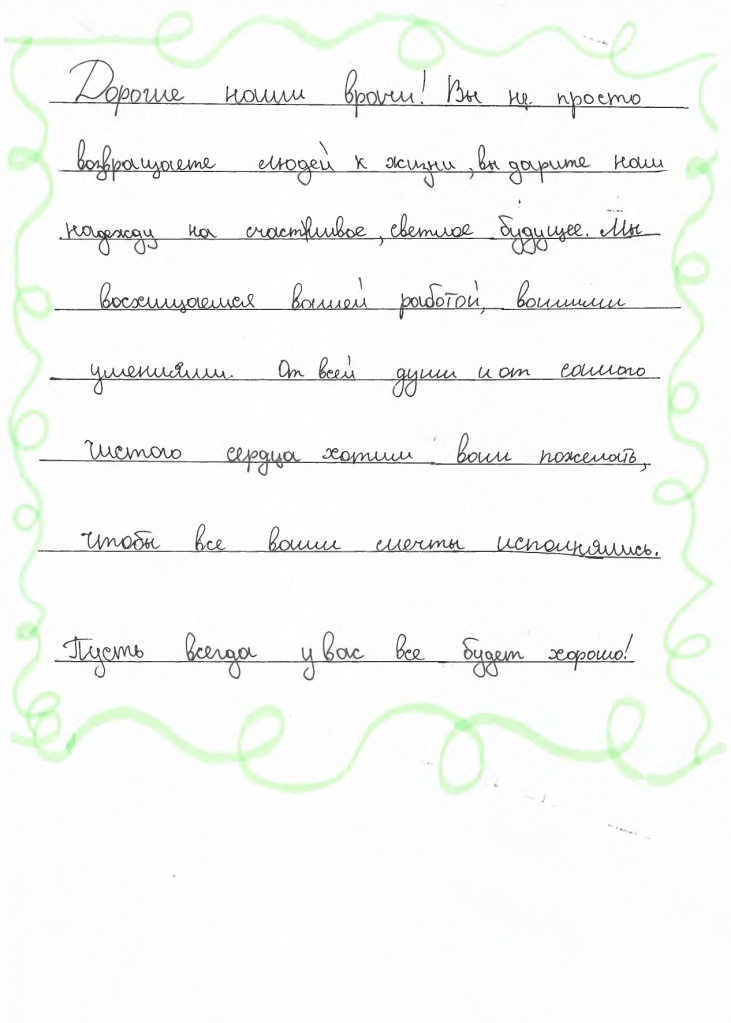 Дорогие наши врачи! Вы не просто
возвращаете людей к жизни, вы дарите нам
надежду на счастливое, светлое будущее. Мы
восхищаемся вашей работой, вашими
умениями. От всей души и от самого
чистого сердца хотим вам пожелать,
чтобы все ваши мечты исполнялись.
Пусть всегда у вас все будет хорошо!